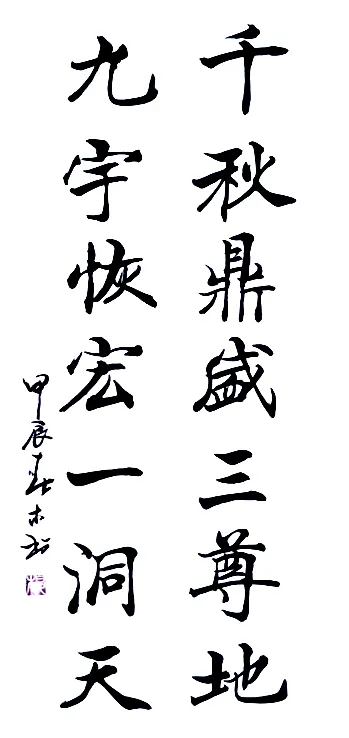 千秋鼎盛三尊地
九宇恢宏一洞天
甲辰春